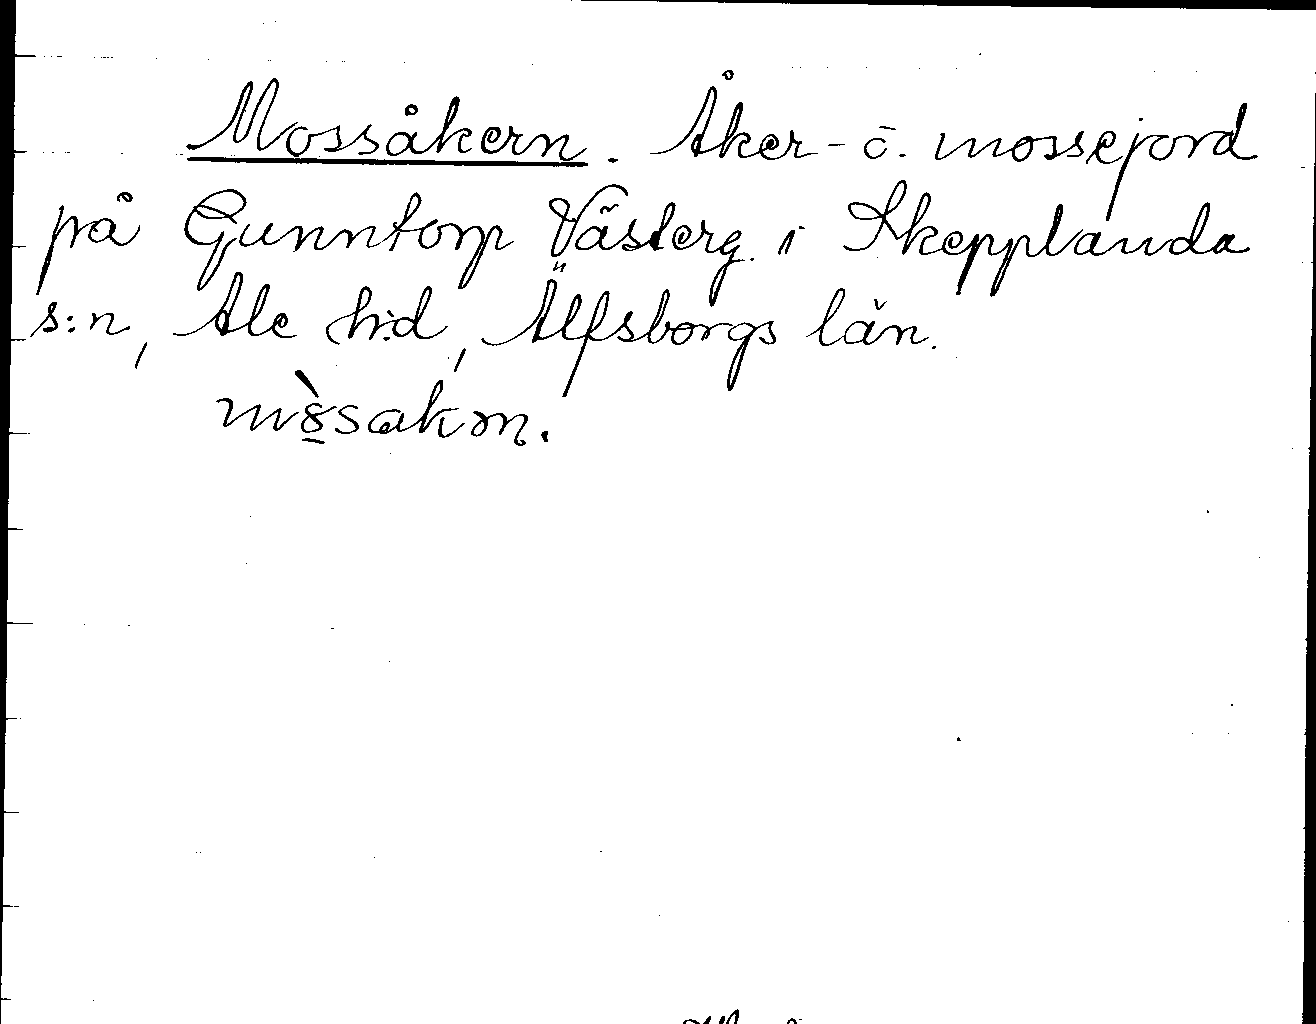 Mossåkern. Åker- o. mossejord
på Gunntorp Västerg. i Skepplanda
s:n, Ale h:d, Älfsborgs län.